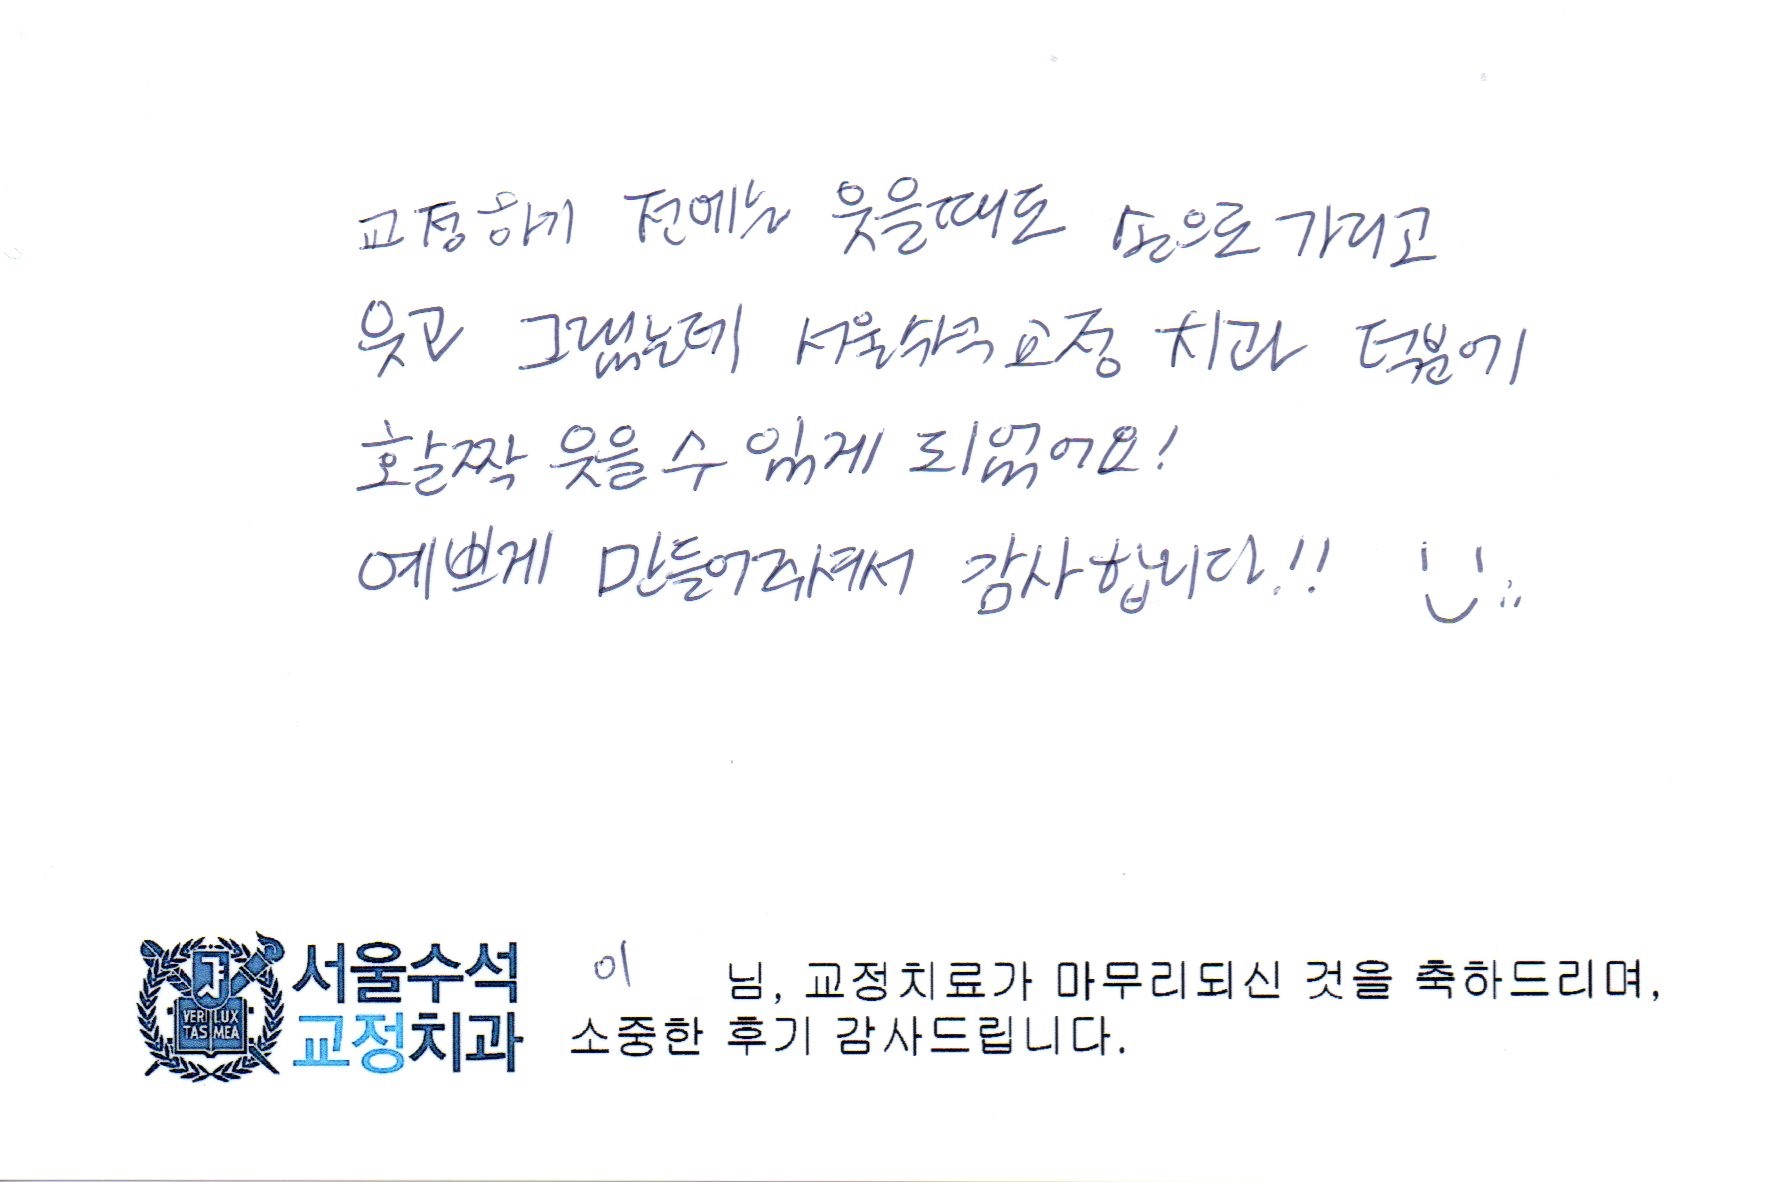 교정하기 전에는 웃을때도 손으로 가리고
웃고 그랬는데 서울수석교정 치과 덕분에
활짝 웃을 수 있게 되었어요!
예쁘게 만들어주셔서 감사합니다!!
서울수석
교정치과
VERI LUX
TAS MEA
이 님, 교정치료가 마무리되신 것을 축하드리며,
소중한 후기 감사드립니다.